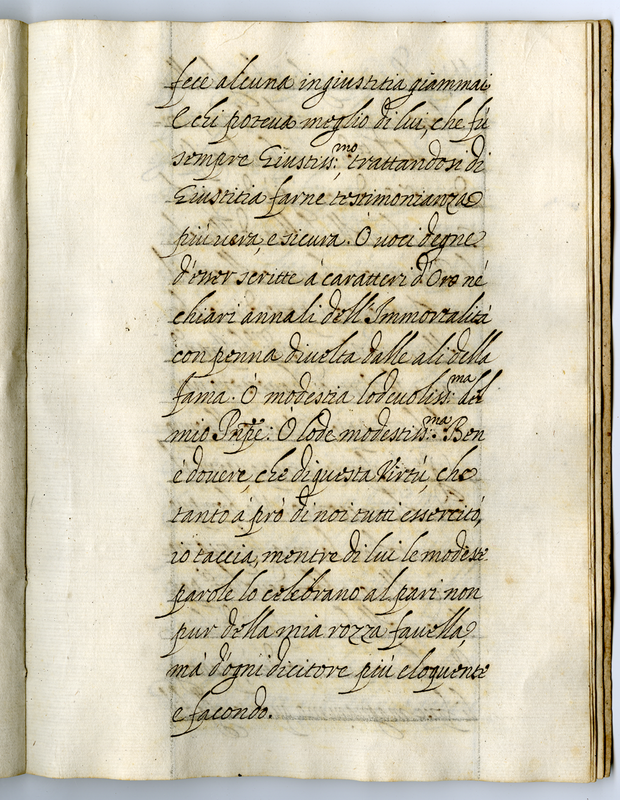 fece alcuna ingiustitia giammai
E chi poteua meglio di lui, che fù
sempre Giustiss:mo, trattandosi di
Giustitia farne testimonianza
più uera, e sicura. Ò uoci degne
d'esser scritte à caratteri d'Oro né
chiari annali dell'Immortalità
con penna diuelta dalle ali della
fama. Ò modestia lodeuoliss:ma del
mio Prñpe: Ò lode modestiss:ma: Ben
è douere, che di questa Virtù, che
tanto à prò di noi tutti essercitò,
io taccia, mentre di lui le modeste
parole lo celebrano al pari non
pur della mia rozza fauella,
mà d'ogni dicitore più eloquente
e facondo.